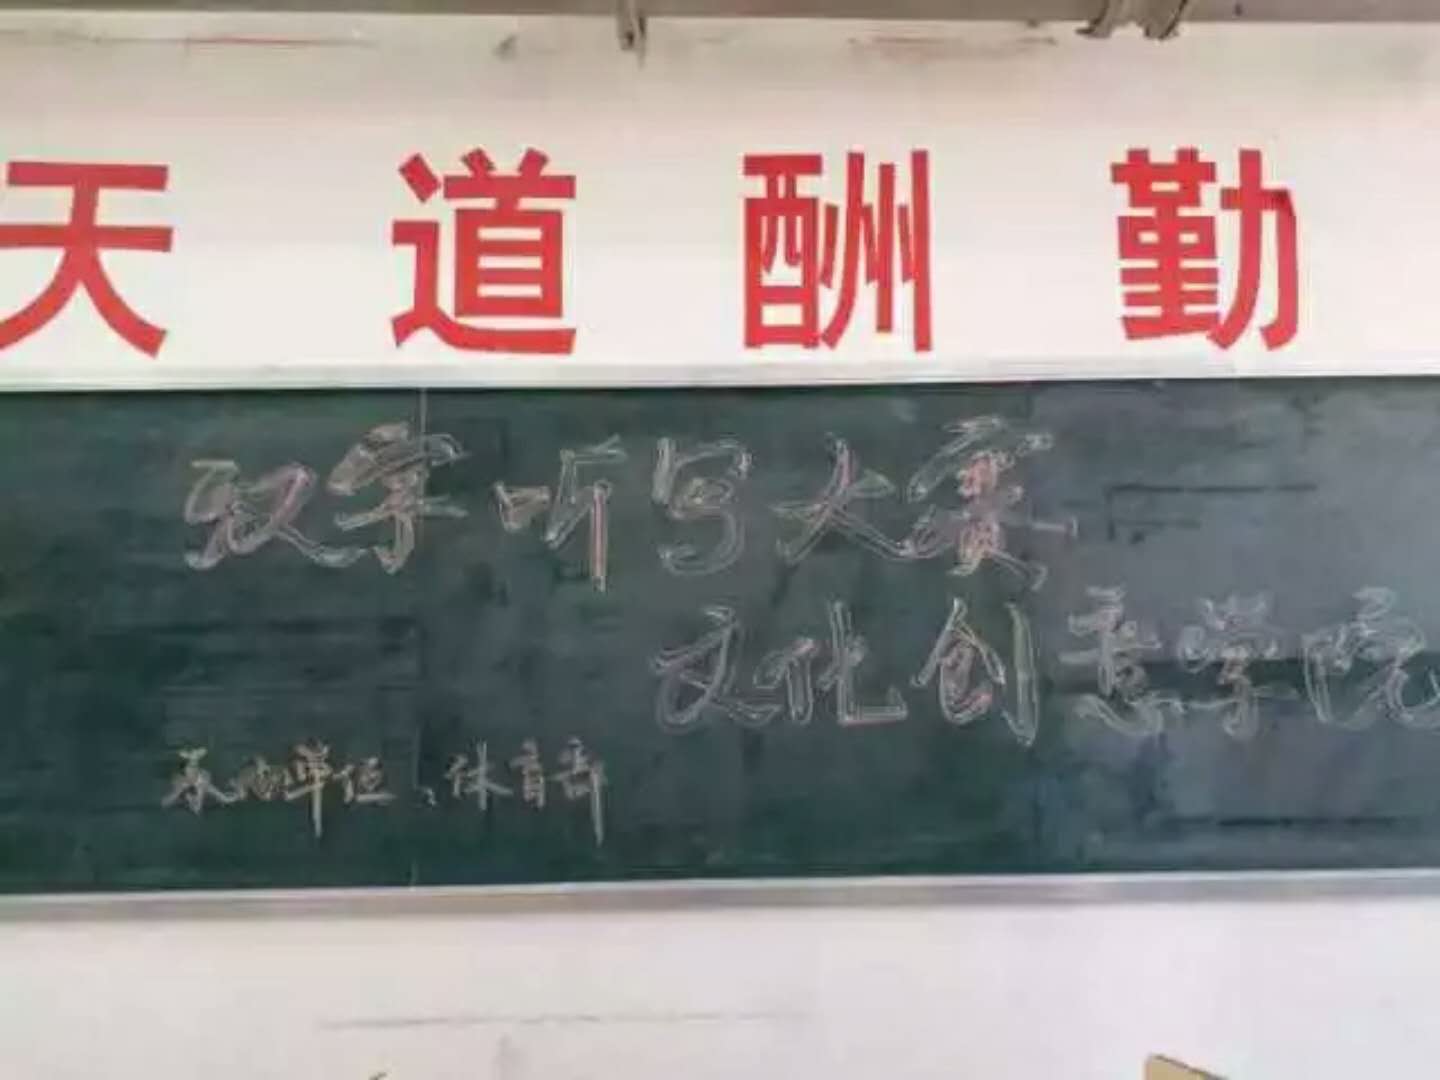 天道酬勤
汉字听写大赛
文化创意学院
承办单位：体育部